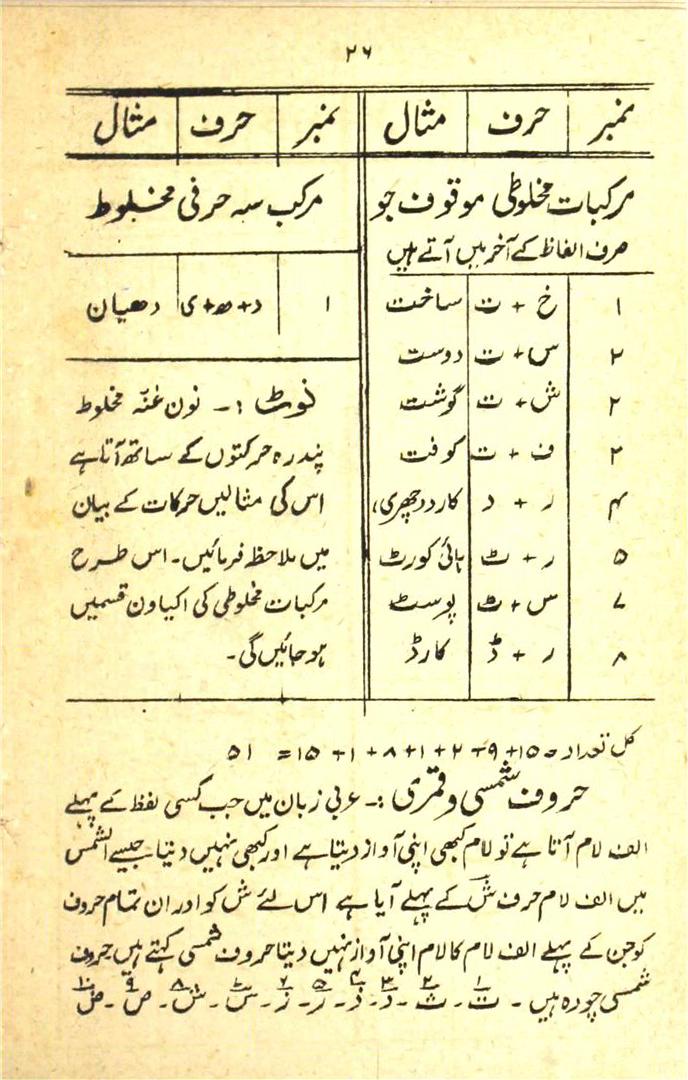 ۲۶
نمبر حرف مثال
مرکبات مخلوطی موقوف جو
صرف الفاظ کے آخر میں آتے ہیں
۱ خ + ت ساخت
۲ س + ت دوست
۲ ش + ت گوشت
۲ ف + ت کوفت
۴ ر + د کارد (چھری)
۵ ر + ٹ ہائی کورٹ
۷ س + ٹ پوسٹ
۸ ر + ڈ کارڈ
نمبر حرف مثال
مرکب سہ حرفی مخلوط
۱ د + ھ + ی دھیان
نوٹ :۔ نون غنّہ مخلوط
پندرہ حرکتوں کے ساتھ آتا ہے
اس کی مثالیں حرکات کے بیان
میں ملاحظہ فرمائیں۔ اس طرح
مرکبات مخلوطی کی اکیاون قسمیں
ہو جائیں گی۔
کل تعداد = ۱۵ + ۹ + ۲ + ۱ + ۸ + ۱ + ۱۵ = ۵۱
حروف شمسی و قمری :۔ عربی زبان میں جب کسی لفظ کے پہلے
الف لام آتا ہے تو لام کبھی اپنی آواز دیتا ہے اور کبھی نہیں دیتا جیسے الشمس
میں الف لام حرف ش کے پہلے آیا ہے اس لئے ش کو اور ان تمام حروف
کو جن کے پہلے الف لام کا لام اپنی آواز نہیں دیتا حروف شمسی کہتے ہیں حروف
شمسی چودہ ہیں ۔ ت ۱ ۔ ث ۲ ۔ د ۳ ۔ ذ ۴ ۔ ر ۵ ۔ ز ۶ ۔ س ۷ ۔ ش ۸ ۔ ص ۹ ۔ ض ۱۰